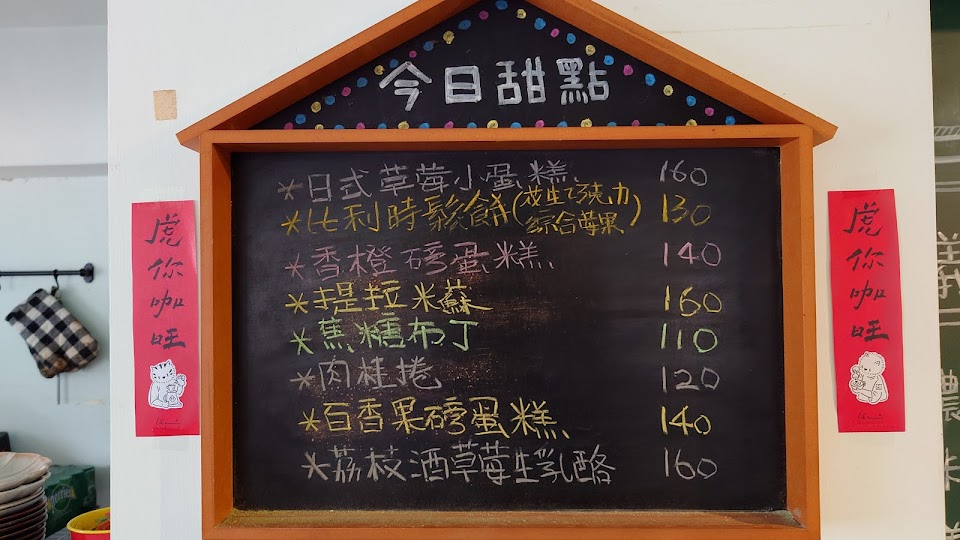 今日甜點
*日式草莓小蛋糕、 160
*比利時鬆餅(花生巧克力 130
綜合莓果)
*香橙磅蛋糕、 140
*提拉米蘇 160
*蕉糖布丁 110
*肉桂捲 120
*百香果磅蛋糕、 140
*荔枝酒草莓生乳酪 160
虎你咖旺
虎你咖旺
義
濃